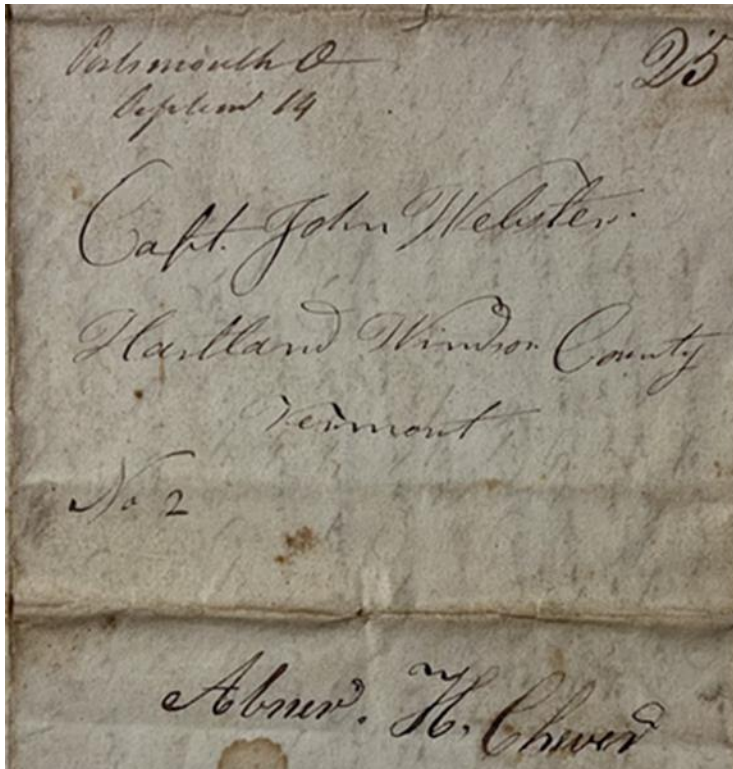 Portsmouth O
25
Septem 14
Capt. John Webster.
Hartland Windsor County
Vermont
No 2
Abner. H. Chever